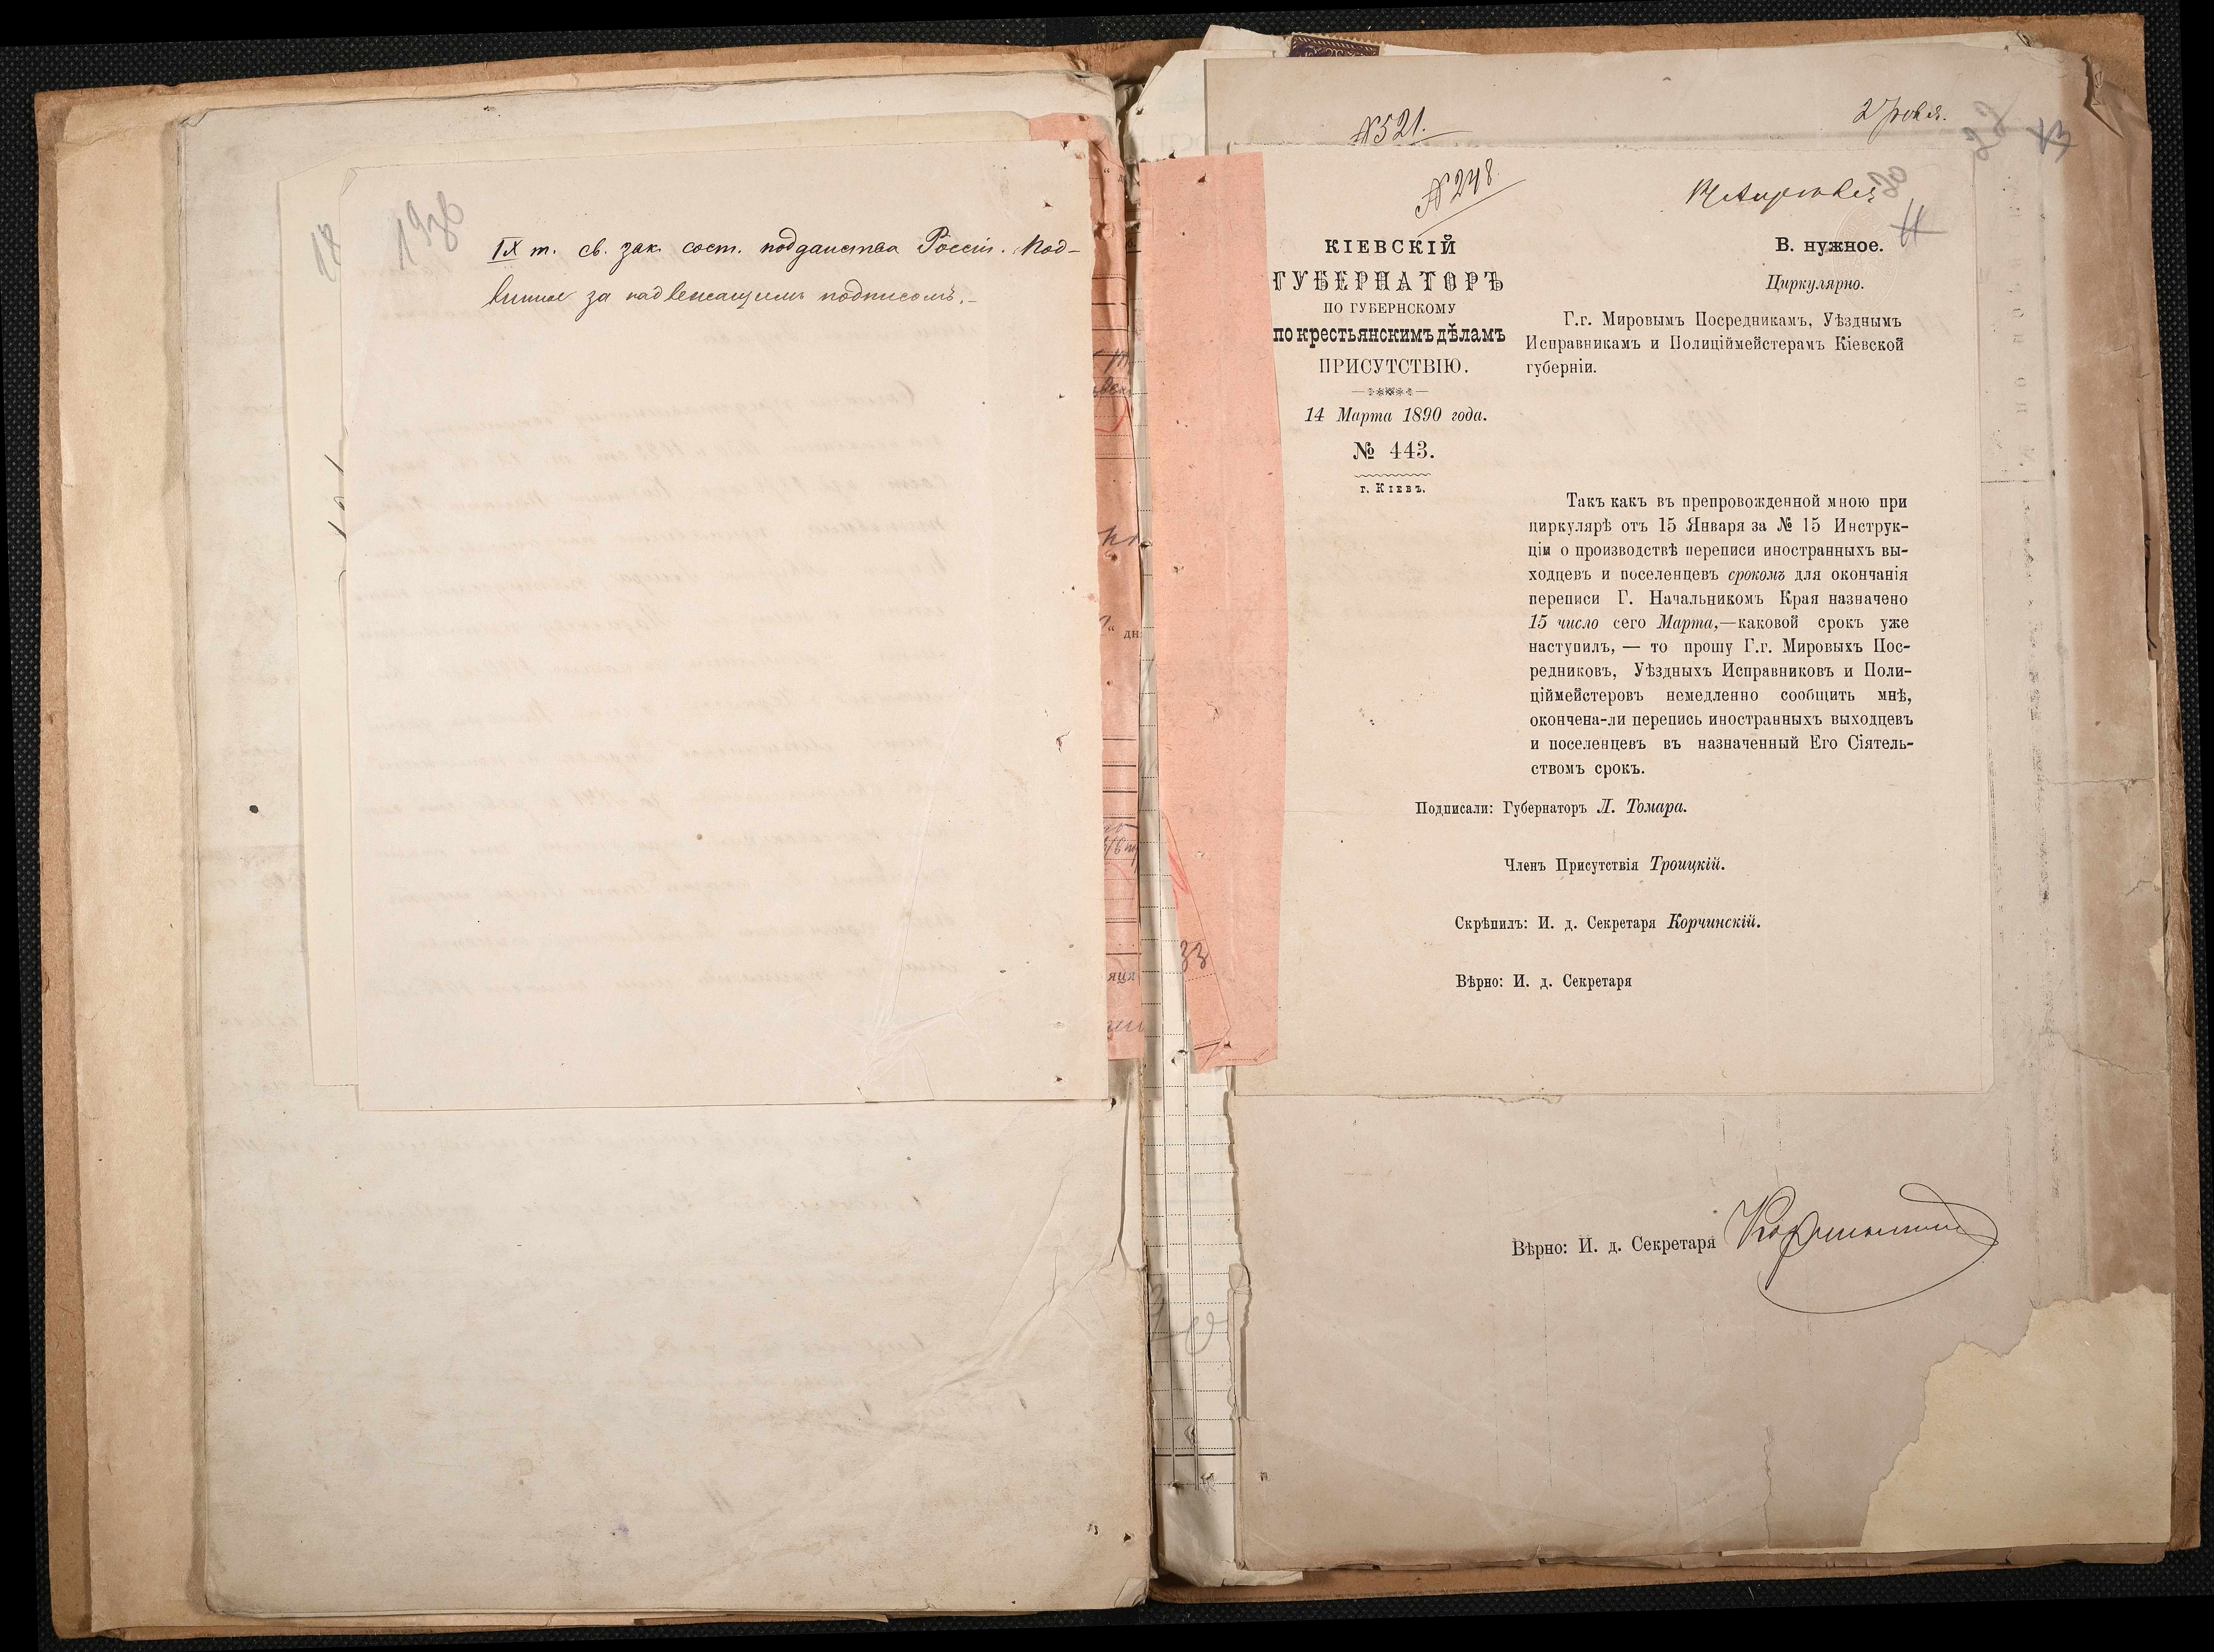 IX т. св. зак. сост. подданства Россіи. Под-
линное за надлежащимъ подписомъ.-
№521.
№ 248
КІЕВСКІЙ
ГУБЕРНАТОРЪ
ПО ГУБЕРНСКОМУ
по крестьянскимъ дѣламъ
ПРИСУТСТВІЮ.
14 Марта 1890 года.
№ 443.
г. Кіевъ.
В. нужное.
Циркулярно.
Г.г. Мировымъ Посредникамъ, Уѣзднымъ
Исправникамъ и Полиціймейстерамъ Кіевской
губерніи.
Такъ какъ въ препровожденной мною при
циркулярѣ отъ 15 Января за № 15 Инструк-
ціи о производствѣ переписи иностранныхъ вы-
ходцевъ и поселенцевъ срокомъ для окончанія
переписи Г. Начальникомъ Края назначено
15 число сего Марта,—каковой срокъ уже
наступилъ, — то прошу Г.г. Мировыхъ Пос-
редниковъ, Уѣздныхъ Исправниковъ и Поли-
ціймейстеровъ немедленно сообщить мнѣ,
окончена-ли перепись иностранныхъ выходцевъ
и поселенцевъ въ назначенный Его Сіятель-
ствомъ срокъ.
Подписали: Губернаторъ Л. Томара.
Членъ Присутствія Троицкій.
Скрѣпилъ: И. д. Секретаря Корчинскій.
Вѣрно: И. д. Секретаря
33
Вѣрно: И. д. Секретаря